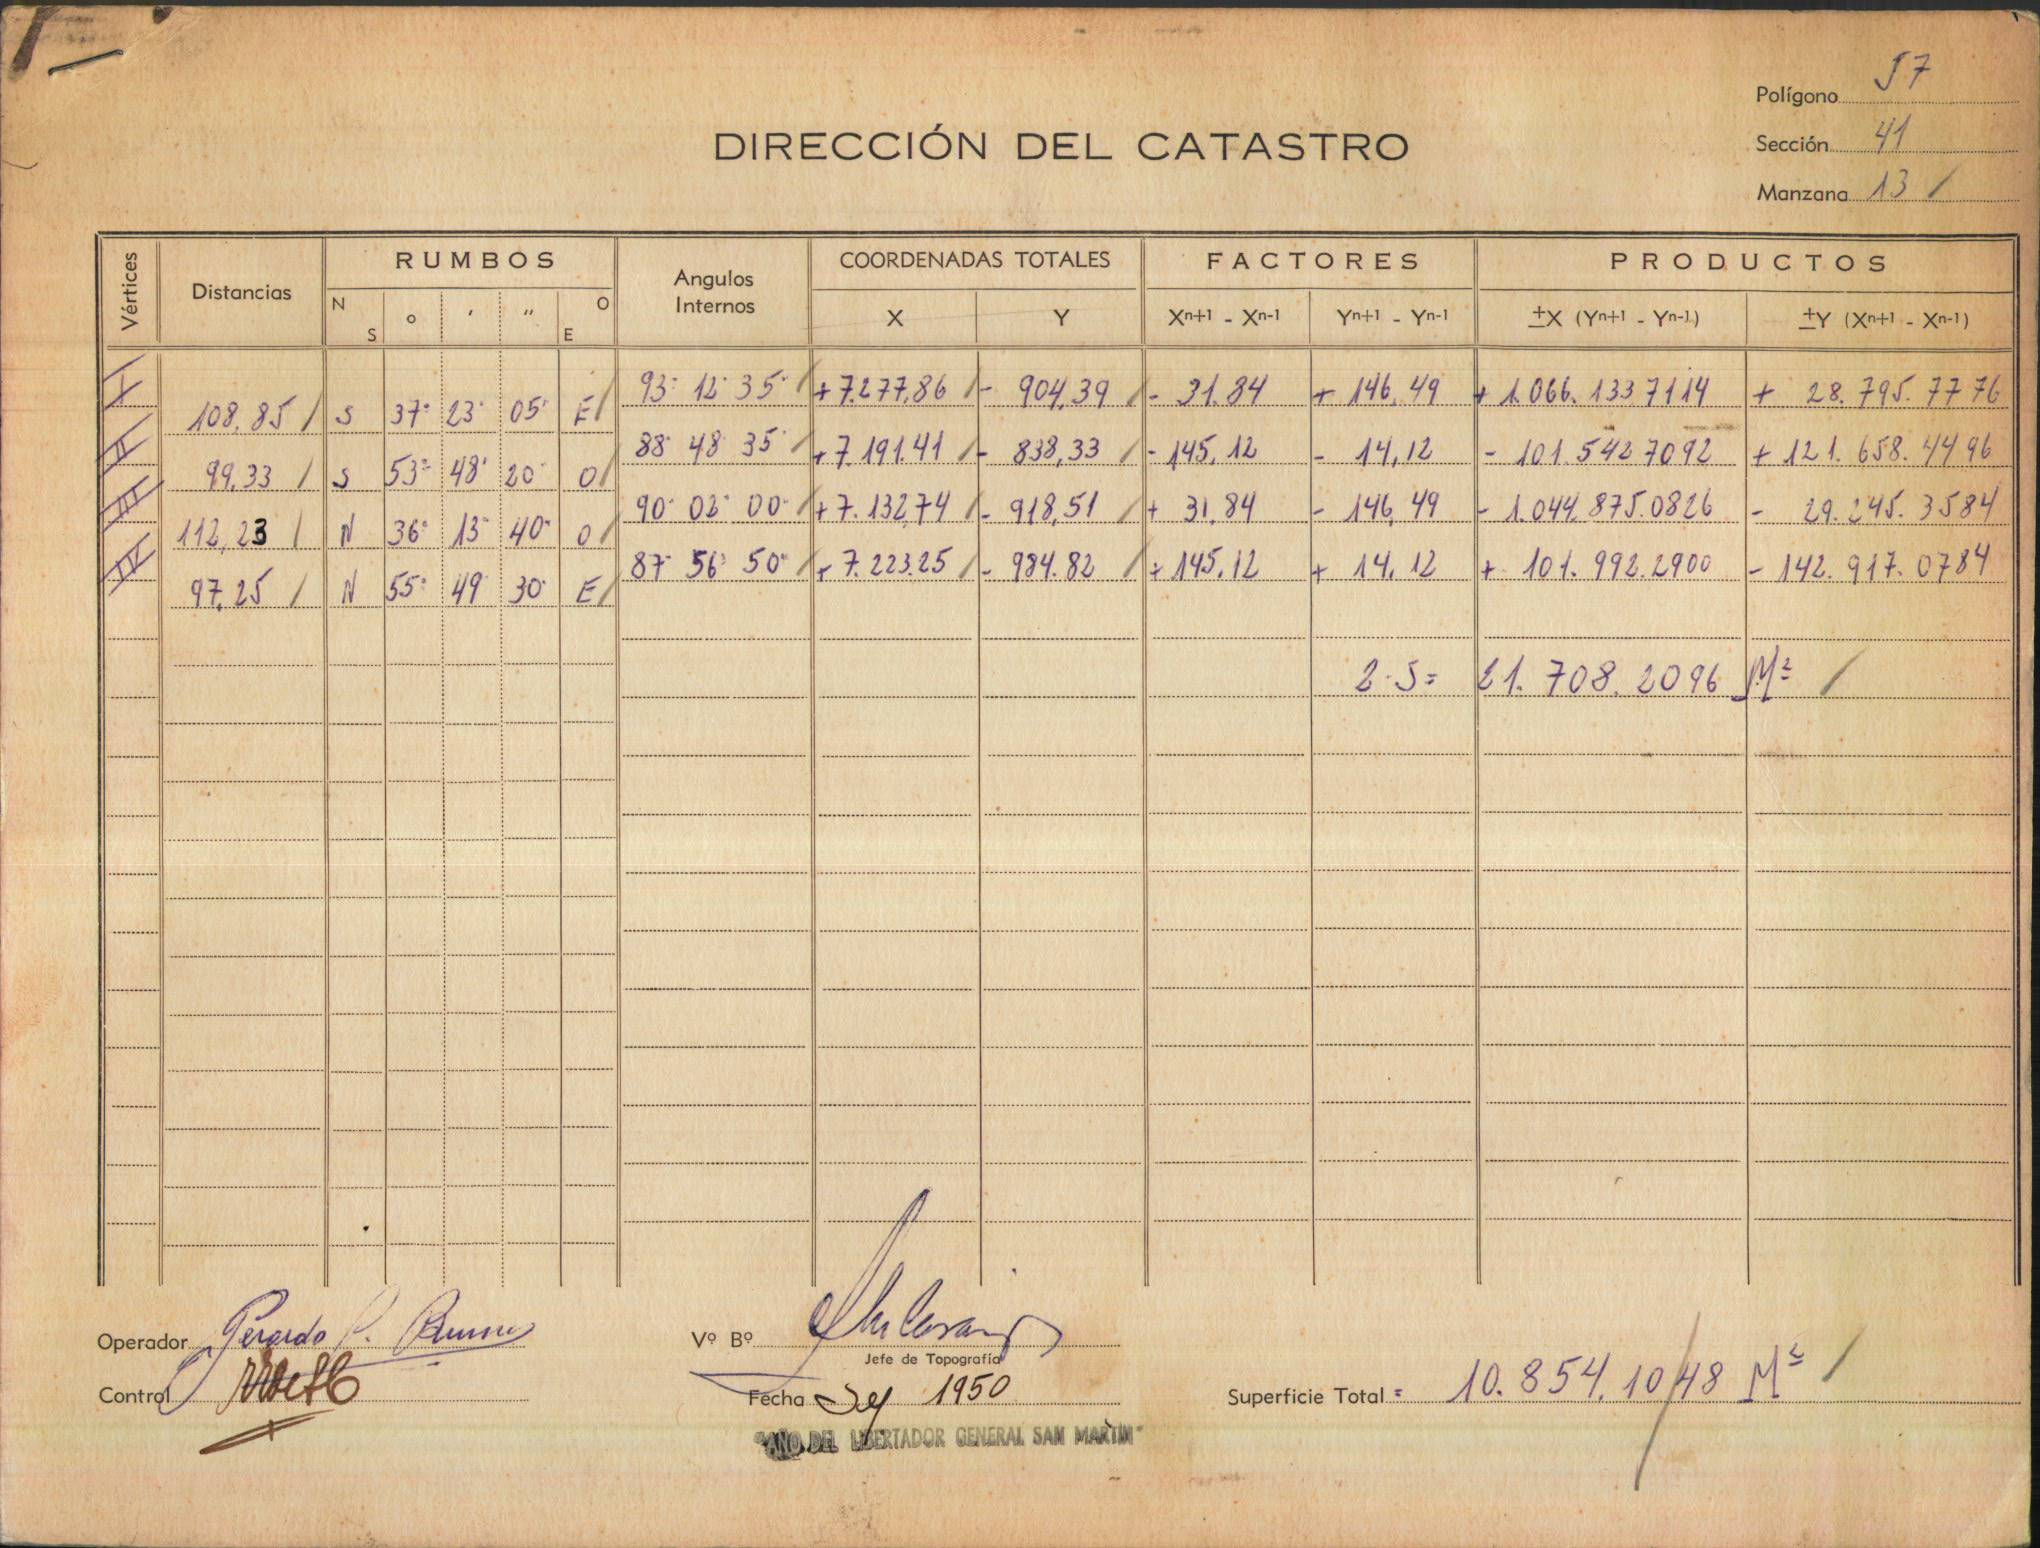 Polígono 57
DIRECCIÓN DEL CATASTRO
Sección 41
Manzana 13 /
Vértices Distancias RUMBOS Angulos Internos COORDENADAS TOTALES FACTORES PRODUCTOS
N S ° ' " O E X Y Xn+1 - Xn-1 Yn+1 - Yn-1 ±X (Yn+1 - Yn-1) ±Y (Xn+1 - Xn-1)
I 93° 12' 35" / +7.277,86 / - 904,39 / - 31.84 + 146,49 + 1.066.133 7114 + 28.795.7776
108.85 / S 37° 23' 05" E /
II 88° 48' 35" / +7.191.41 / - 838,33 / - 145,12 - 14,12 - 101.542 7092 + 121.658.4496
99,33 / S 53° 48' 20" O /
III 90° 02' 00" / +7.132,74 / - 918,51 / + 31,84 - 146,49 - 1.044.875.0826 - 29.245.3584
112,23 / N 36° 13' 40" O /
IV 87° 56' 50" / + 7.223.25 / - 984.82 / + 145,12 + 14,12 + 101.992.2900 - 142.917.0784
97,25 / N 55° 49' 30" E /
2·S= 21.708.2096 M² /
Operador Gerardo P.
Vº Bº
Jefe de Topografía
Control
Fecha 1950
Superficie Total = 10.854,1048 M² /
"AÑO DEL LIBERTADOR GENERAL SAN MARTIN"